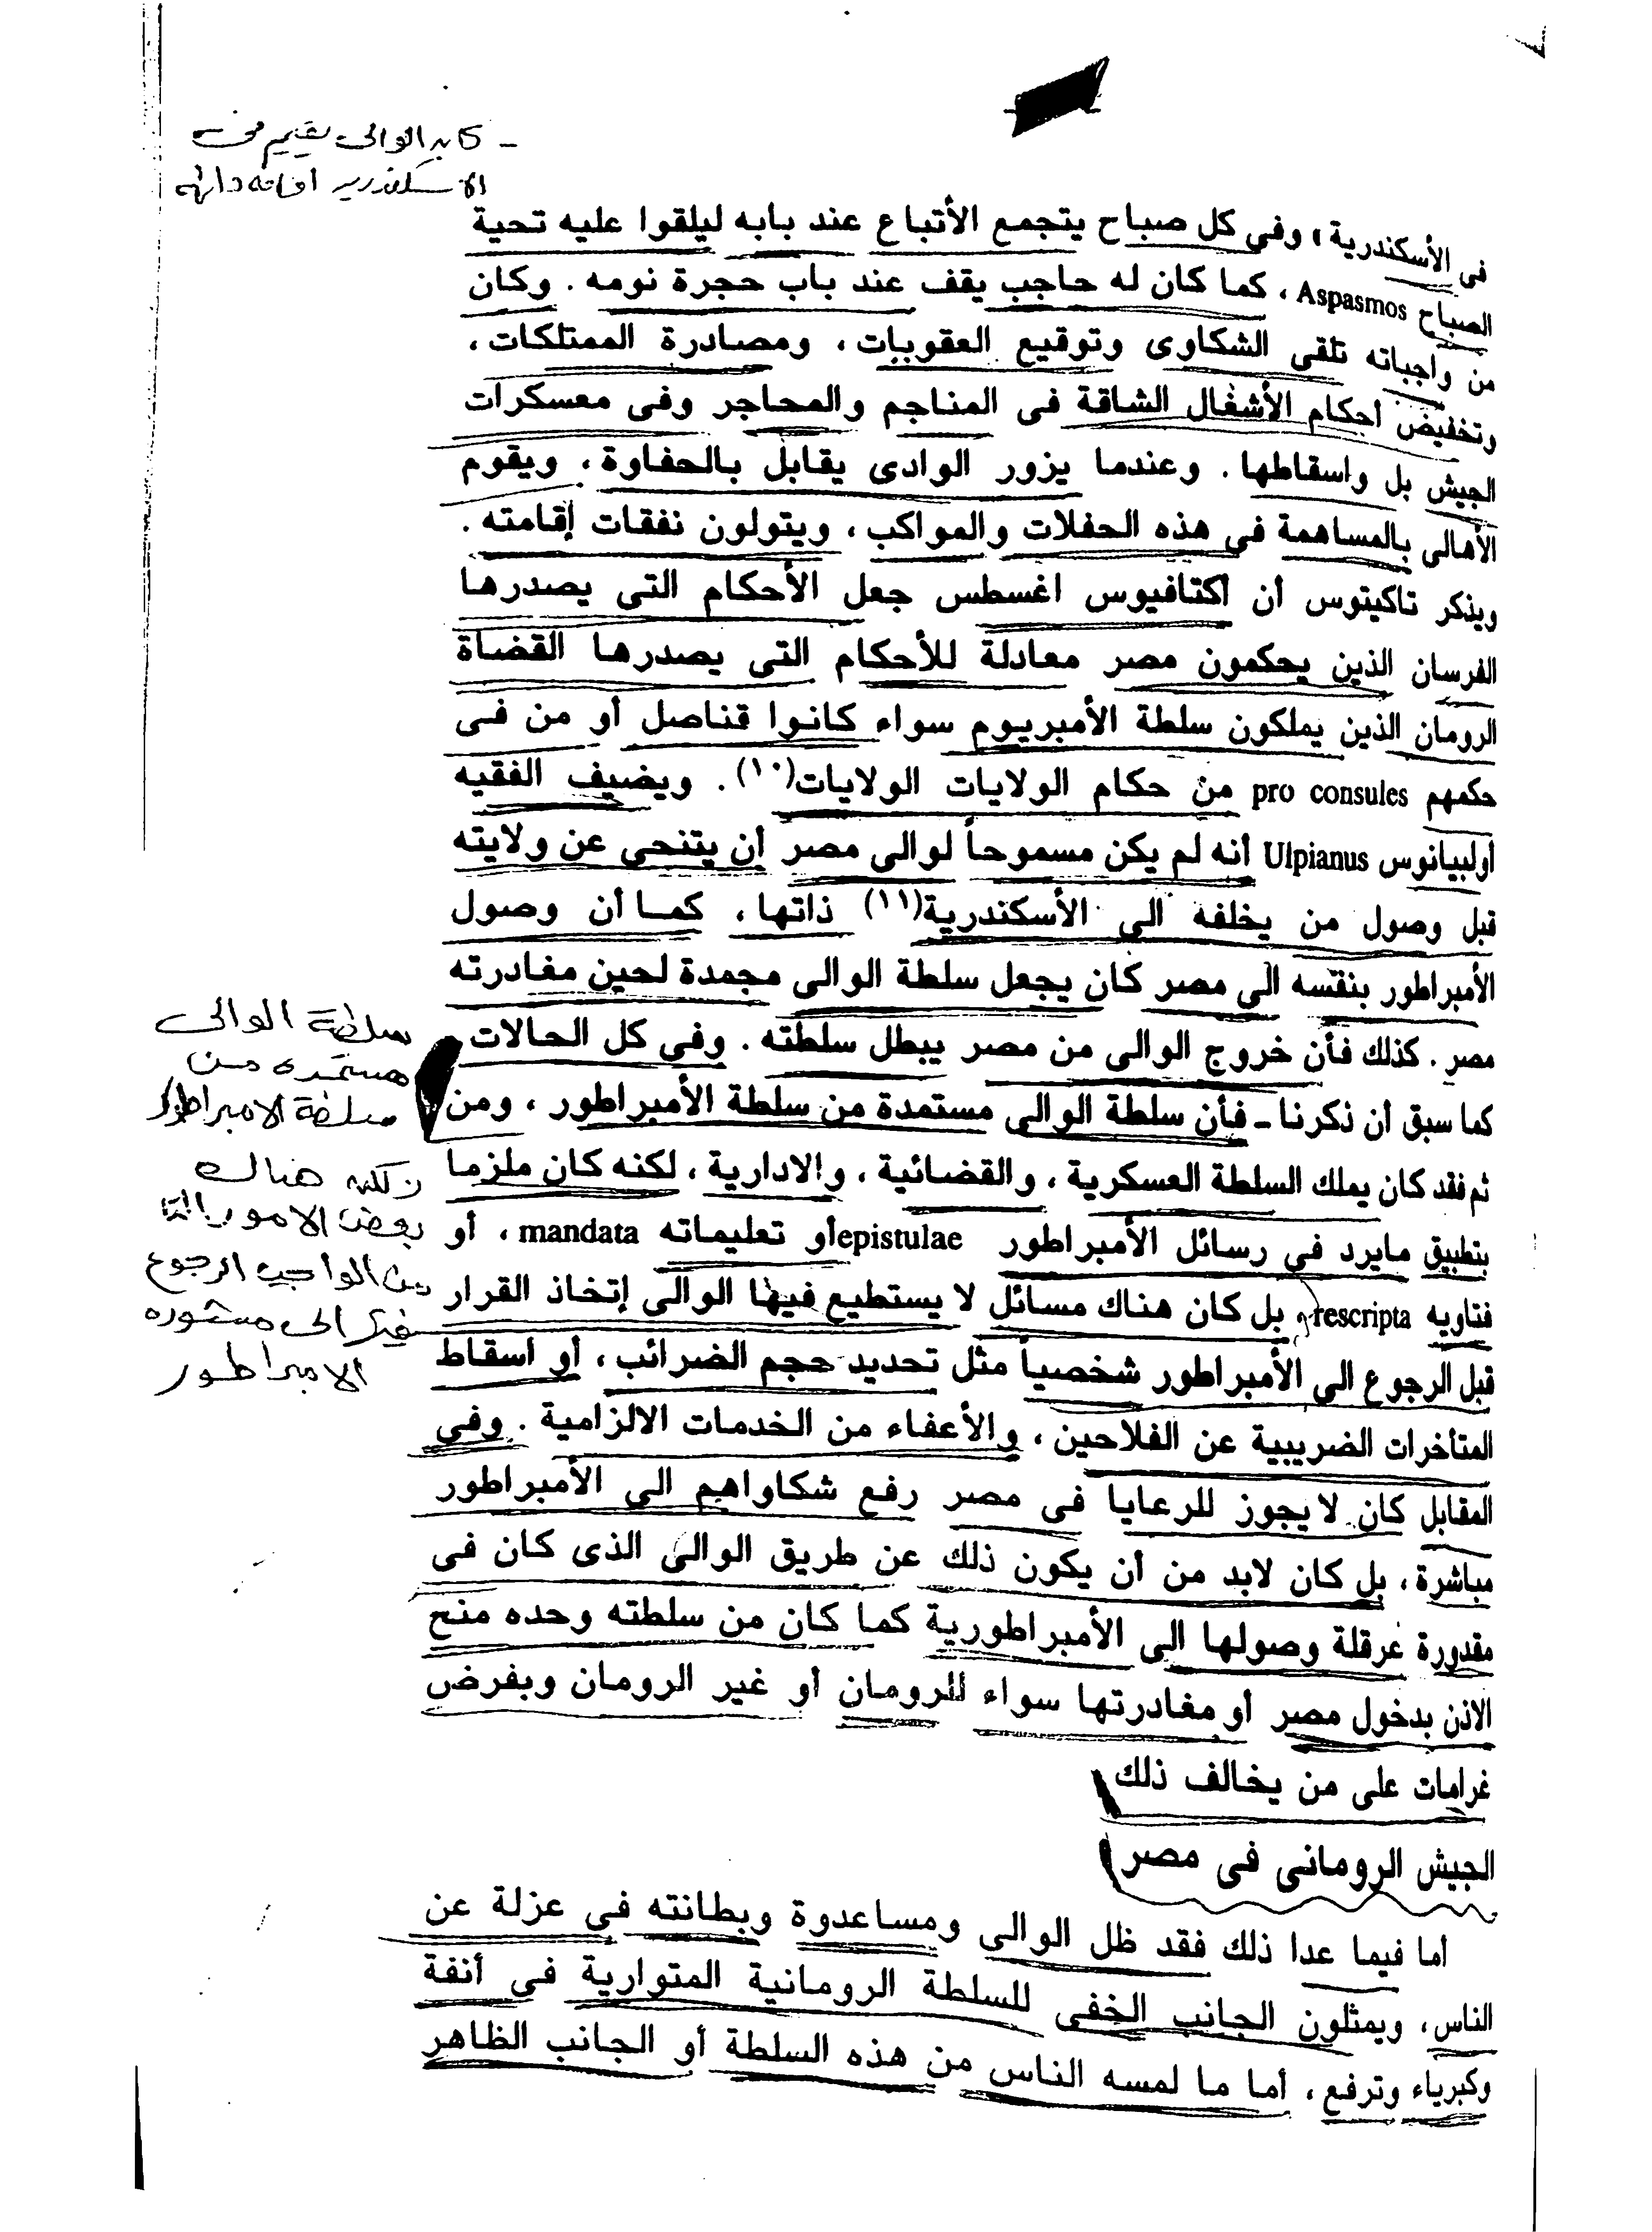 ٧
- كان الوالى يقيم فى
الاسكندرية اقامة دائمة
فى الأسكندرية، وفى كل صباح يتجمع الأتباع عند بابه ليلقوا عليه تحية
الصباح Aspasmos ، كما كان له حاجب يقف عند باب حجرة نومه . وكان
من واجباته تلقى الشكاوى وتوقيع العقوبات ، ومصادرة الممتلكات ،
وتخفيض أحكام الأشغال الشاقة فى المناجم والمحاجر وفى معسكرات
الجيش بل واسقاطها . وعندما يزور الوادى يقابل بالحفاوة ، ويقوم
الأهالى بالمساهمة فى هذه الحفلات والمواكب ، ويتولون نفقات إقامته .
ويذكر تاكيتوس أن أكتافيوس اغسطس جعل الأحكام التى يصدرها
الفرسان الذين يحكمون مصر معادلة للأحكام التى يصدرها القضاة
الرومان الذين يملكون سلطة الأمبريوم سواء كانوا قناصل أو من فى
حكمهم pro consules من حكام الولايات الولايات(١٠) . ويضيف الفقيه
أولبيانوس Ulpianus أنه لم يكن مسموحاً لوالى مصر أن يتنحى عن ولايته
قبل وصول من يخلفه الى الأسكندرية(١١) ذاتها ، كما أن وصول
الأمبراطور بنفسه الى مصر كان يجعل سلطة الوالى مجمدة لحين مغادرته
مصر . كذلك فأن خروج الوالى من مصر يبطل سلطته . وفى كل الحالات
كما سبق أن ذكرنا - فأن سلطة الوالى مستمدة من سلطة الأمبراطور ، ومن
ثم فقد كان يملك السلطة العسكرية ، والقضائية ، والادارية ، لكنه كان ملزما
بتطبيق مايرد فى رسائل الأمبراطور epistulae أو تعليماته mandata ، أو
فتاويه rescripta، بل كان هناك مسائل لا يستطيع فيها الوالى إتخاذ القرار
قبل الرجوع الى الأمبراطور شخصياً مثل تحديد حجم الضرائب ، أو اسقاط
المتأخرات الضريبية عن الفلاحين ، والأعفاء من الخدمات الالزامية . وفى
المقابل كان لايجوز للرعايا فى مصر رفع شكاواهم الى الأمبراطور
مباشرة ، بل كان لابد من أن يكون ذلك عن طريق الوالى الذى كان فى
مقدورة عرقلة وصولها الى الأمبراطورية كما كان من سلطته وحده منح
الاذن بدخول مصر أو مغادرتها سواء للرومان أو غير الرومان وبفرض
غرامات على من يخالف ذلك
سلطة الوالى
مستمده من
سلطة الامبراطور
ولكن هناك
بعض الامور التى
من الواجب الرجوع
فيها الى مشوره
الامبراطور
الجيش الرومانى فى مصر
أما فيما عدا ذلك فقد ظل الوالى ومساعدوة وبطانته فى عزلة عن
الناس ، ويمثلون الجانب الخفى للسلطة الرومانية المتوارية فى أنفة
وكبرياء وترفع ، أما ما لمسه الناس من هذه السلطة أو الجانب الظاهر